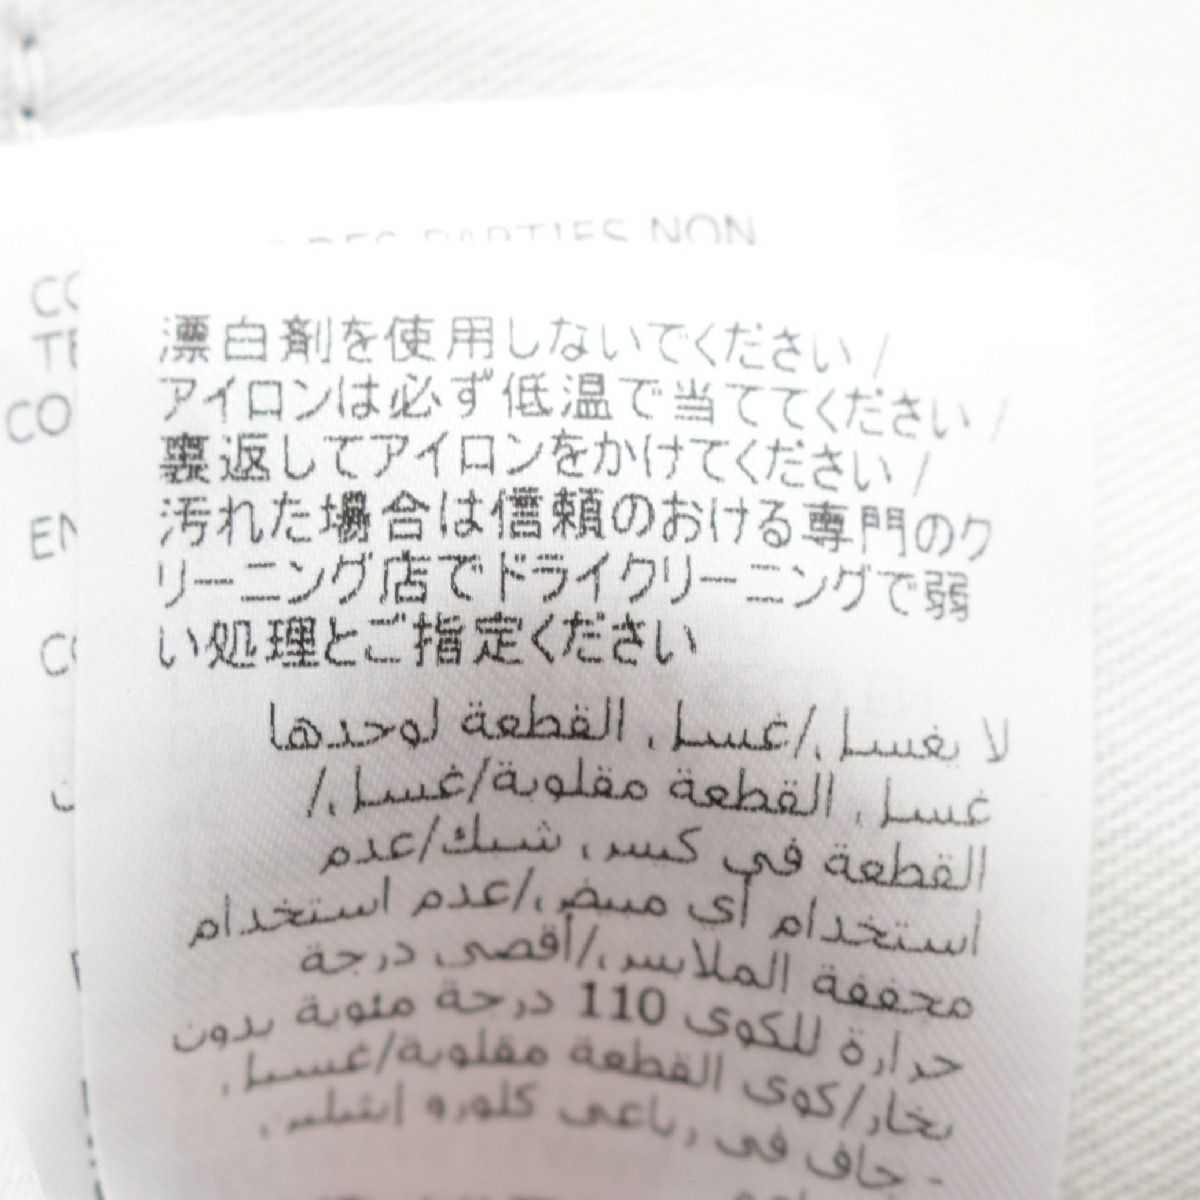 DES PARTIES NON
漂白剤を使用しないでください /
アイロンは必ず低温で当ててください /
裏返してアイロンをかけてください /
汚れた場合は信頼のおける専門のク
リーニング店でドライクリーニングで弱
い処理とご指定ください
لا يغسل/غسل القطعة لوحدها
غسل القطعة مقلوبة/غسل/
القطعة في كيس شبك/عدم
استخدام أي مبيض/عدم استخدام
مجففة الملابس/أقصى درجة
حرارة للكوى 110 درجة مئوية بدون
بخار/كوى القطعة مقلوبة/غسيل
- جاف في رباعي كلورو إيثيلين
CO
TE
CO
EN
CO